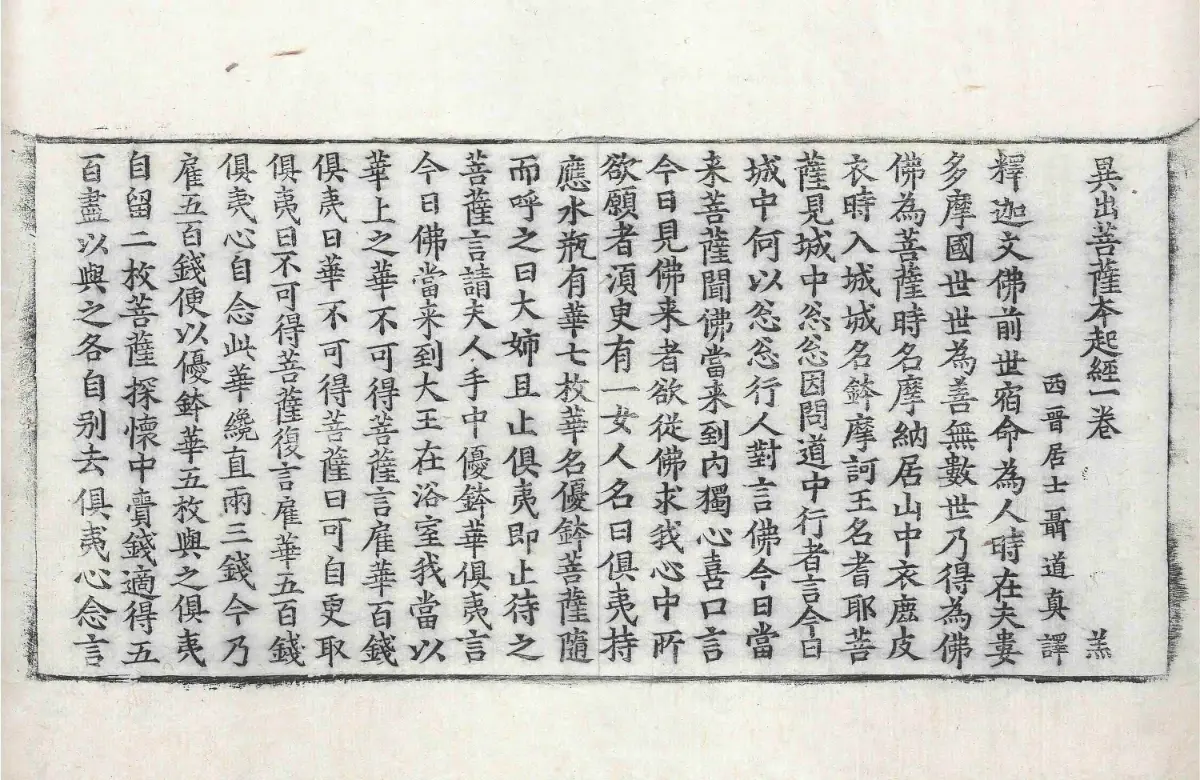 異出菩薩本起經一卷 羔
西晉居士聶道真譯
釋迦文佛前世宿命為人時在夫婁
多摩國世世為善無數世乃得為佛
佛為菩薩時名摩納居山中衣鹿皮
衣時入城城名鉢摩訶王名耆耶菩
薩見城中忩忩因問道中行者言今日
城中何以忩忩行人對言佛今日當
来菩薩聞佛當来到内獨心喜口言
今日見佛来者欲從佛求我心中所
欲願者湏臾有一女人名曰俱夷持
應水瓶有華七枚華名優鉢菩薩隨
而呼之曰大姉且止俱夷即止待之
菩薩言請夫人手中優鉢華俱夷言
今日佛當来到大王在浴室我當以
華上之華不可得菩薩言雇華百錢
俱夷曰華不可得菩薩曰可自更取
俱夷曰不可得菩薩復言雇華五百錢
俱夷心自念此華纔直兩三錢今乃
雇五百錢便以優鉢華五枚與之俱夷
自留二枚菩薩探懷中賷錢適得五
百盡以與之各自别去俱夷心念言